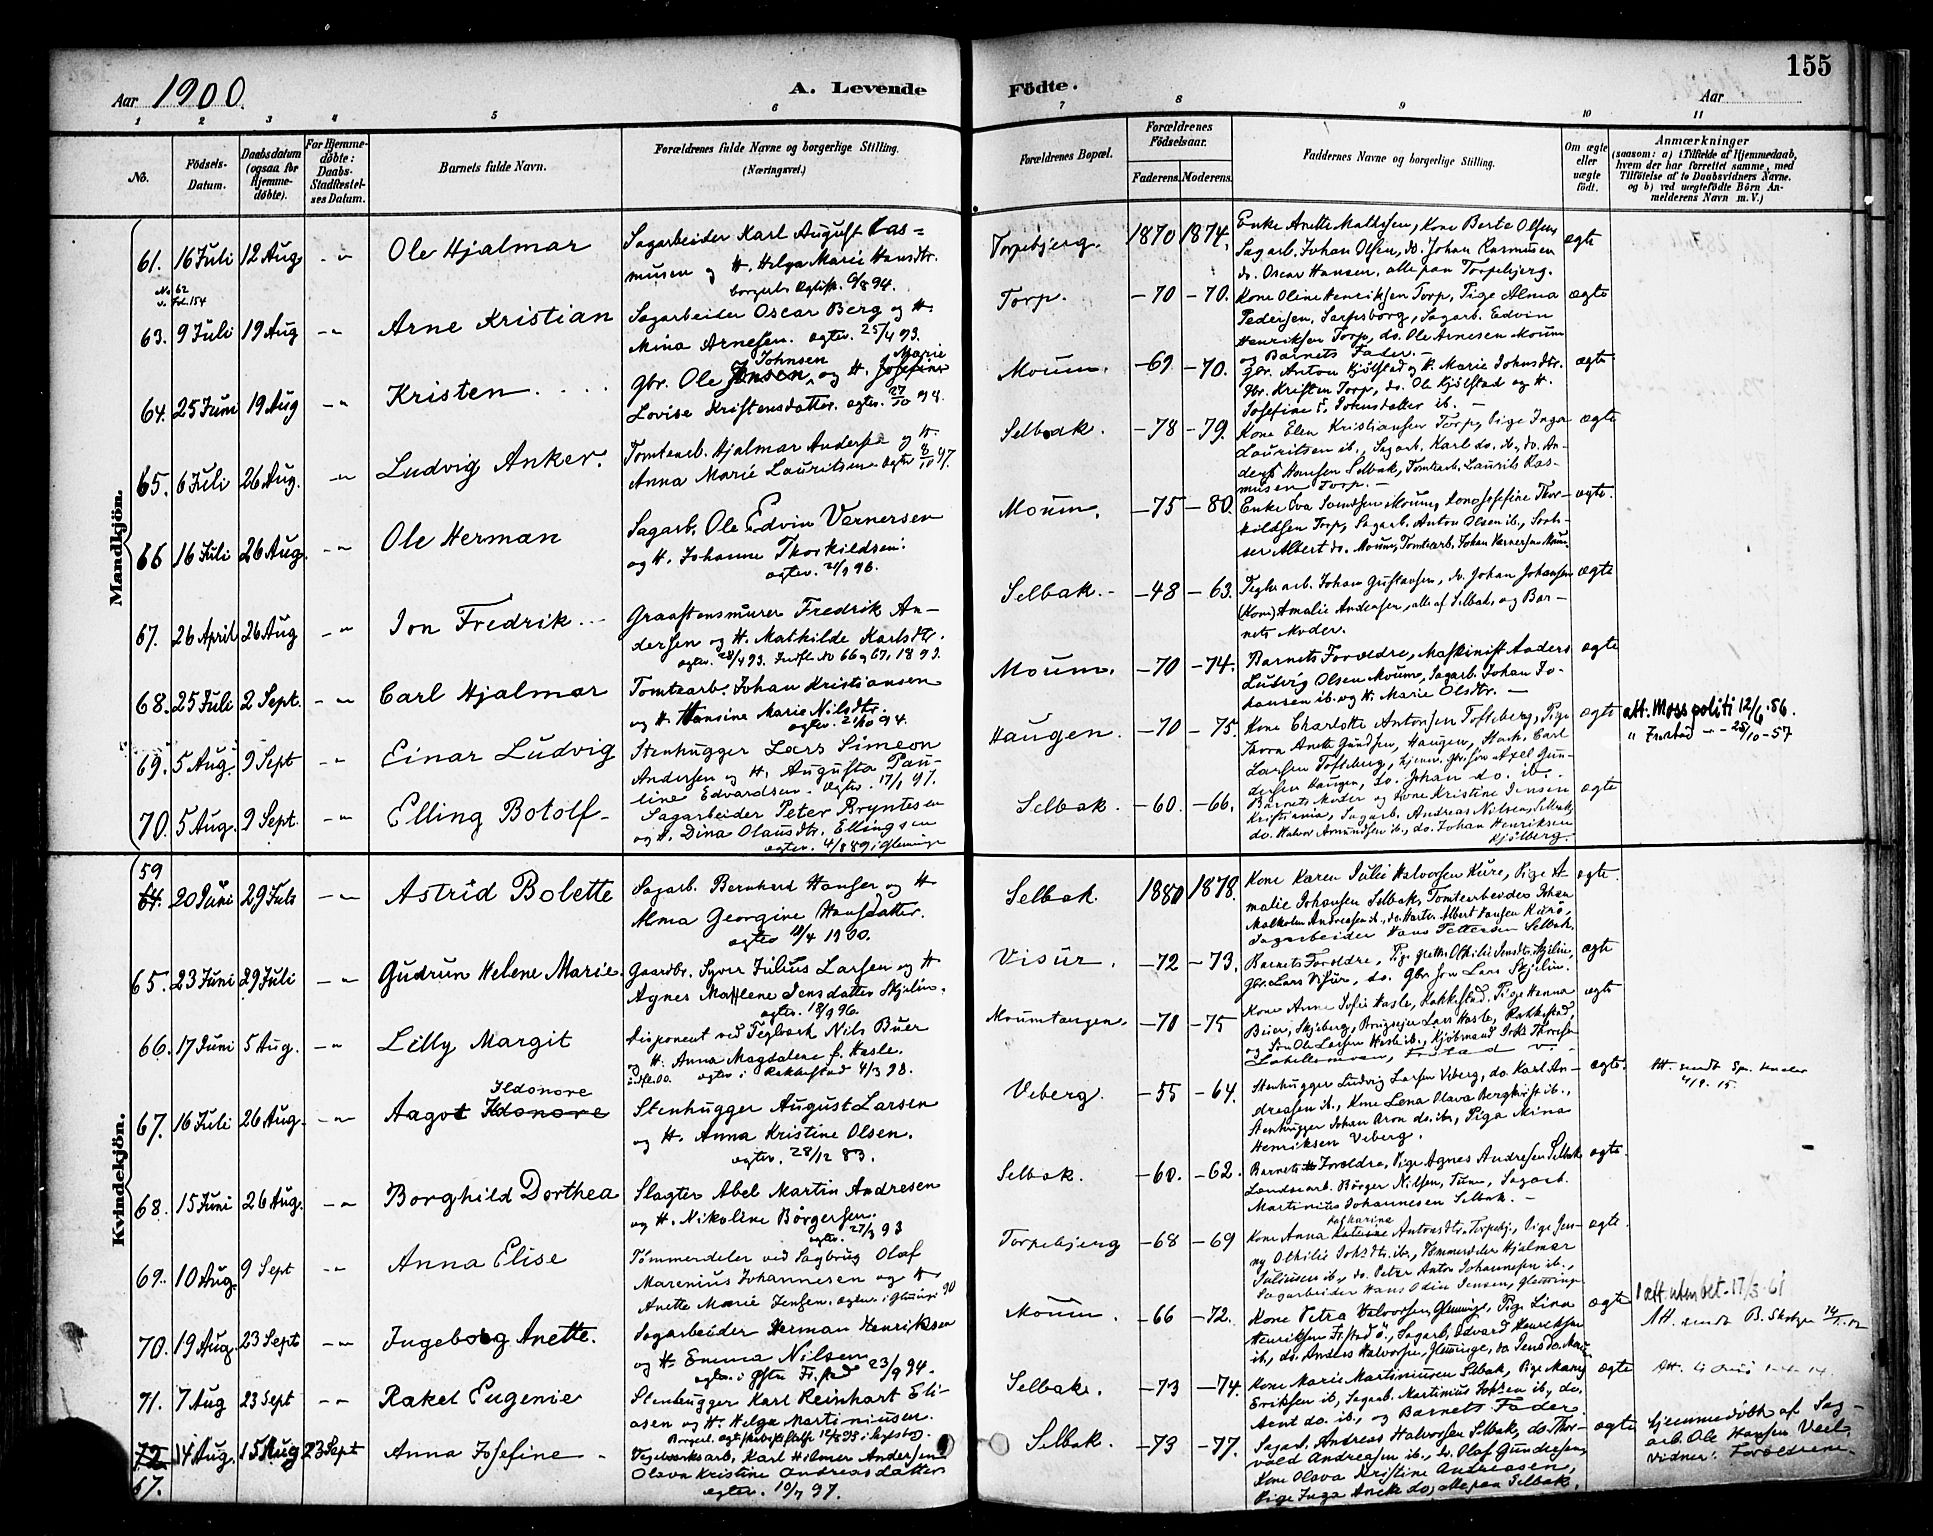 155
Aar 1900.
A. Levende Fødte.
Aar
1 2 3 4 5 6 7 8 9 10 11
No.
Fødsels-Datum.
Daabsdatum (ogsaa for Hjemmedøbte).
For Hjemmedøbte: Daabs-Stadfæstelses Datum.
Barnets fulde Navn.
Forældrenes fulde Navne og borgerlige Stilling. (Næringsvei.)
Forældrenes Bopæl.
Forældrenes Fødselsaar.
Faderens. Moderens.
Faddernes Navne og borgerlige Stilling.
Om ægte eller uægte født.
Anmærkninger
(saasom: a) i Tilfælde af Hjemmedaab, hvem der har forrettet samme, med Tilføielse af to Daabsvidners Navne. og b) ved uægtefødte Børn Anmelderens Navn m. V.)
Mandkjön.
61. 16 Juli 12 Aug Ole Hjalmar
Sagarbeider Karl August Ras=
musen og H. Helga Marie Hansdtr.
Torpebjerg. 1870 1874.
Enke Anette Mathisen, Kone Berte Olsen,
Sagarb. Johan Olsen, do. Johan Rasmusen
do. Oscar Hansen, alle paa Torpebjerg.
ægte
No 62
v. Fol. 154
63. 9 Juli 19 Aug Arne Kristian
Sagarbeider Oscar Berg og H.
Mina Arnesen. ægtev. 25/4 93.
Torp. -70 -70.
Kone Oline Henriksen Torp, Pige Alma
Pedersen, Sarpsborg, Sagarb. Edvin
Henriksen Torp, do. Ole Arnesen Moum
og Barnets Fader.
ægte
64. 25 Juni 19 Aug Kristen
Gbr. Ole Jensen Johnsen og H. Josefine Marie
Lovise Kristensdatter. ægtev. 27/10 94.
Moum. -69 -70.
Gbr. Anton Kjölstad og H. Marie Johnsdtr.
Gbr. Kristen Torp, do. Ole Kjölstad og H.
Josefine f. Johnsdatter ib.
ægte
65. 6 Juli 26 Aug. Ludvig Anker.
Tomtearb. Hjalmar Andersen og H.
Anna Marie Lauritsen. ægtev 8/10 97.
Selbak. -78 -79.
Kone Elen Kristiansen Torp, Pige Inga
Lauritsen ib., Sagarb. Karl do. ib., do. An-
ders Hansen Selbak, Tomtearb. Laurits Ras-
musen Torp.
ægte
66 16 Juli 26 Aug. Ole Herman
Sagarb. Ole Edvin Vernersen
og H. Johanne Thorkildsen.
Moum. -75 -80.
ægte.
67. 26 April 26 Aug Jon Fredrik
Graastensmurer Fredrik An-
dersen og H. Mathilde Karlsdtr.
ægtev. 28/4 93.
Selbak. -48 -63.
Teglv.arb. Johan Gustavsen, do. Johan Johansen
(Kone) Amalie Andersen, alle af Selbak, og Bar-
nets Moder.
ægte
68. 25 Juli 2 Sept. Carl Hjalmar
Tomtearb. Johan Kristiansen
og H. Hansine Marie Nilsdtr.
ægtev. 21/10 94.
Moum. -70 -74.
Barnets Forældre, Maskinist Anders
Ludvig Olsen Moum, Sagarb. Johan Jo-
hansen ib. og H. Marie Olsdtr.
ægte
69. 5 Aug. 9 Sept Einar Ludvig
Stenhugger Lars Simeon
Andersen og H. Augusta Pau-
line Edvardsen. ægtev. 17/1 97.
Haugen. -70 -75.
Kone Charlotte Antonsen Tofteberg, Pige
Thora Anette Gundsen, Haugen, Carl
Larsen Tofteberg, Axel Gun-
dersen Haugen, do. Johan do. ib.
ægte
att. Moss politi 12/6. 56.
" Fr.stad - - 28/10 - 57
70. 5 Aug. 9 Sept. Elling Botolf
Sagarbeider Peter Bryntesen
og H. Dina Olausdtr. Ellingsen
ægtev. 4/8 89 i Glemminge
Selbak. -60. -66.
Barnets Moder og Kone Kristine Jensen
Kristiania, Sagarb. Andreas Nilsen, Selbak,
do. Halvor Amundsen ib., do. Johan Henriksen
Kjölberg.
ægte
Kvindekjön.
59
64. 20 Juni 29 Juli Astrid Bolette
Sagarb. Bernhard Hansen og H
Alma Georgine Hansdatter.
Selbak. 1880 1878.
Kone Karen Julie Halvorsen Kure, Pige A-
malie Johansen Selbak, Tomtearbeider Johan
Sagarbeider Hans Pettersen Selbak.
ægte.
65. 23 Juni 29 Juli Gudrun Helene Marie.
Gaardbr. Syver Julius Larsen og H
Agnes Mathlene Jensdatter Skjelin.
ægtev. 18/9 96.
Visur. -72 -73.
Barnets Forældre, Pige Grethe Othilie Jensdtr. Skjelin,
Gbr. Lars Visur, do. Gbr. søn Lars Skjelin.
ægte
66. 17 Juni 5 Aug. Lilly Margit
Disponent ved Teglværk Nils Buer
og H. Anna Magdalene f. Hasle.
ægtev i Rakkestad 4/3 98.
Moumtangen. -70 -75
Kone Anne Sofie Hasle, Rakkestad, Pige Hanna
Beier, Skjeberg, Brugseier Lars Hasle, Rakkestad,
ægte
67. 16 Juli 26 Aug. Aagot Ildonore Ildonore
Stenhugger August Larsen
og H. Anna Kristine Olsen.
ægtev. 28/12 83.
Veberg. -55 -64.
Stenhugger Ludvig Larsen Veberg, do. Karl An-
dreasen ib., Kone Lena Olava Bergkvist ib.,
Stenhugger Johan Aron do. ib., Pige Mina
Henriksen Veberg.
ægte.
68. 15 Juni 26 Aug. Borghild Dorthea
Slagter Abel Martin Andresen
og H. Nikoline Börgersen.
Selbak. -60. -62.
Barnets Forældre, Pige Agnes Andresen Selbak
Landarb. Börger Nilsen, Tune, Sagarb.
Martinius Johannesen Selbak.
ægte.
69. 10 Aug. 9 Sept Anna Elise
Tömmerdeler ved Sagbrug Olaf
Marenius Johannesen og H
Anette Marie Jensen. ægtev. i Glemminge 90
Torpebjerg -68 -69
Kone Anna Katharine Antonsdtr. Torpebj., Pige Jen-
ny Othilie Johsdtr. ib., Tømmerdeler Hjalmar
Juliusen ib., do. Peter Anton Johannesen ib.,
Sagarbeider Hans Odin Jensen, Glemminge
ægte.
70. 19 Aug. 23 Sept Ingeborg Anette.
Sagarbeider Herman Henriksen
og H. Emma Nilsen
23/9 94.
Moum. -66 -72.
Kone Petra Halvorsen Glemminge, Pige Lina
Henriksen Fr.stad Ö., Sagarb. Edvard Henriksen
ib., do. Anders Halvorsen, Glemminge, do. Jens do. Moum
ægte
1 att. uten bet. 17/3-61
71. 7 Aug 23 Sept Rakel Eugenie
Stenhugger Karl Reinhart Eli-
asen og H. Helga Martiniusen.
Selbak. -73 -74.
Kone Marie Martiniusen Selbak, Pige Maren
Eriksen ib., Sagarb. Martinius Johsen ib., do.
Arnt do. ib., og Barnets Fader
ægte
72 67. 14 Aug. 15 Aug 23 Sept Anna Josefine
Teglværksarb. Karl Hilmer Andersen
Olava Kristine Andreasdatter
ægtev. 10/7 97.
Selbak. -73 -77.
Sagarb. Andreas Halvorsen Selbak, do. Thor-
vald Andreasen ib., do. Olaf Gundersen,
Kone Olava Kristine Andreasen,
Pige Inga Anette do., alle paa Selbak.
ægte
Hjemmedöbt af Sag-
arb. Ole Hansen
Vidner: Forældrene.